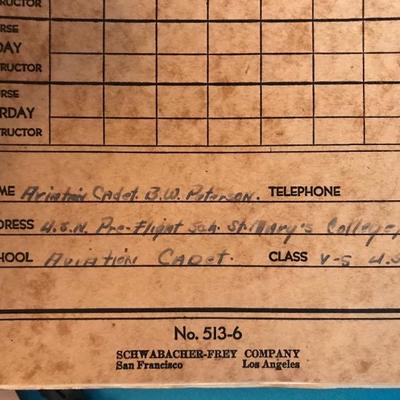 RUCTOR
RSE
DAY
RUCTOR
RSE
RDAY
RUCTOR
ME Aviation Cadet. B.W. Peterson. TELEPHONE
DRESS U.S.N. Pre-Flight Sch. St. Mary's College,
HOOL Aviation Cadet. CLASS V-5 U.S
No. 513-6
SCHWABACHER-FREY COMPANY
San Francisco Los Angeles